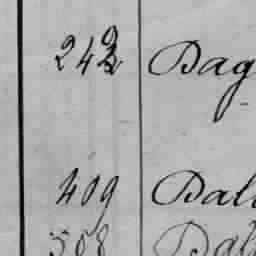 242 Dag
409 Dal
508 Dal